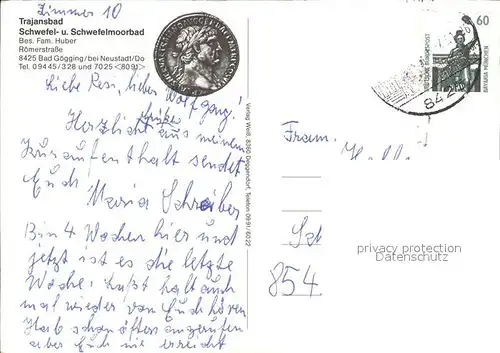 Zimmer 10
Trajansbad
Schwefel- u. Schwefelmoorbad
Bes. Fam. Huber
Römerstraße
8425 Bad Gögging/bei Neustadt/Do
Tel. 09445/328 und 7025 <8091>
Liebe Resi, lieber Wolfgang!
Herzliche Grüße aus meinem
Kuraufenthalt sendet
Euch Maria Schreiber
Bin 4 Wochen hier und
jetzt ist es die letzte
Woche. Laßt halt auch
mal wieder von Euch hören
Hab schon öfters angerufen
aber Euch nie erreicht
Verlag Weiß, 8360 Deggendorf, Telefon 0991/6022
60
DEUTSCHE BUNDESPOST
BAVARIA MÜNCHEN
842
Fam.
854
privacy protection
Datenschutz